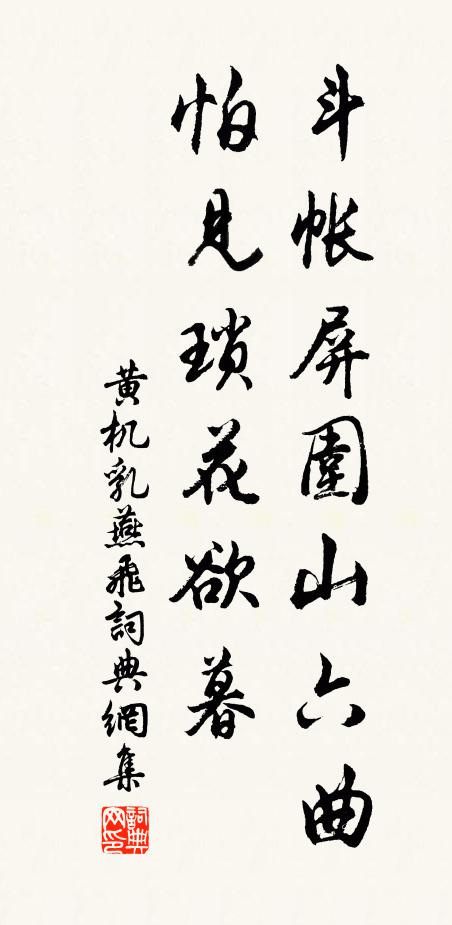 斗帐屏圍山六曲
怕見瑣花欲暮
黄机乳燕飛詞典網集
詞典网印